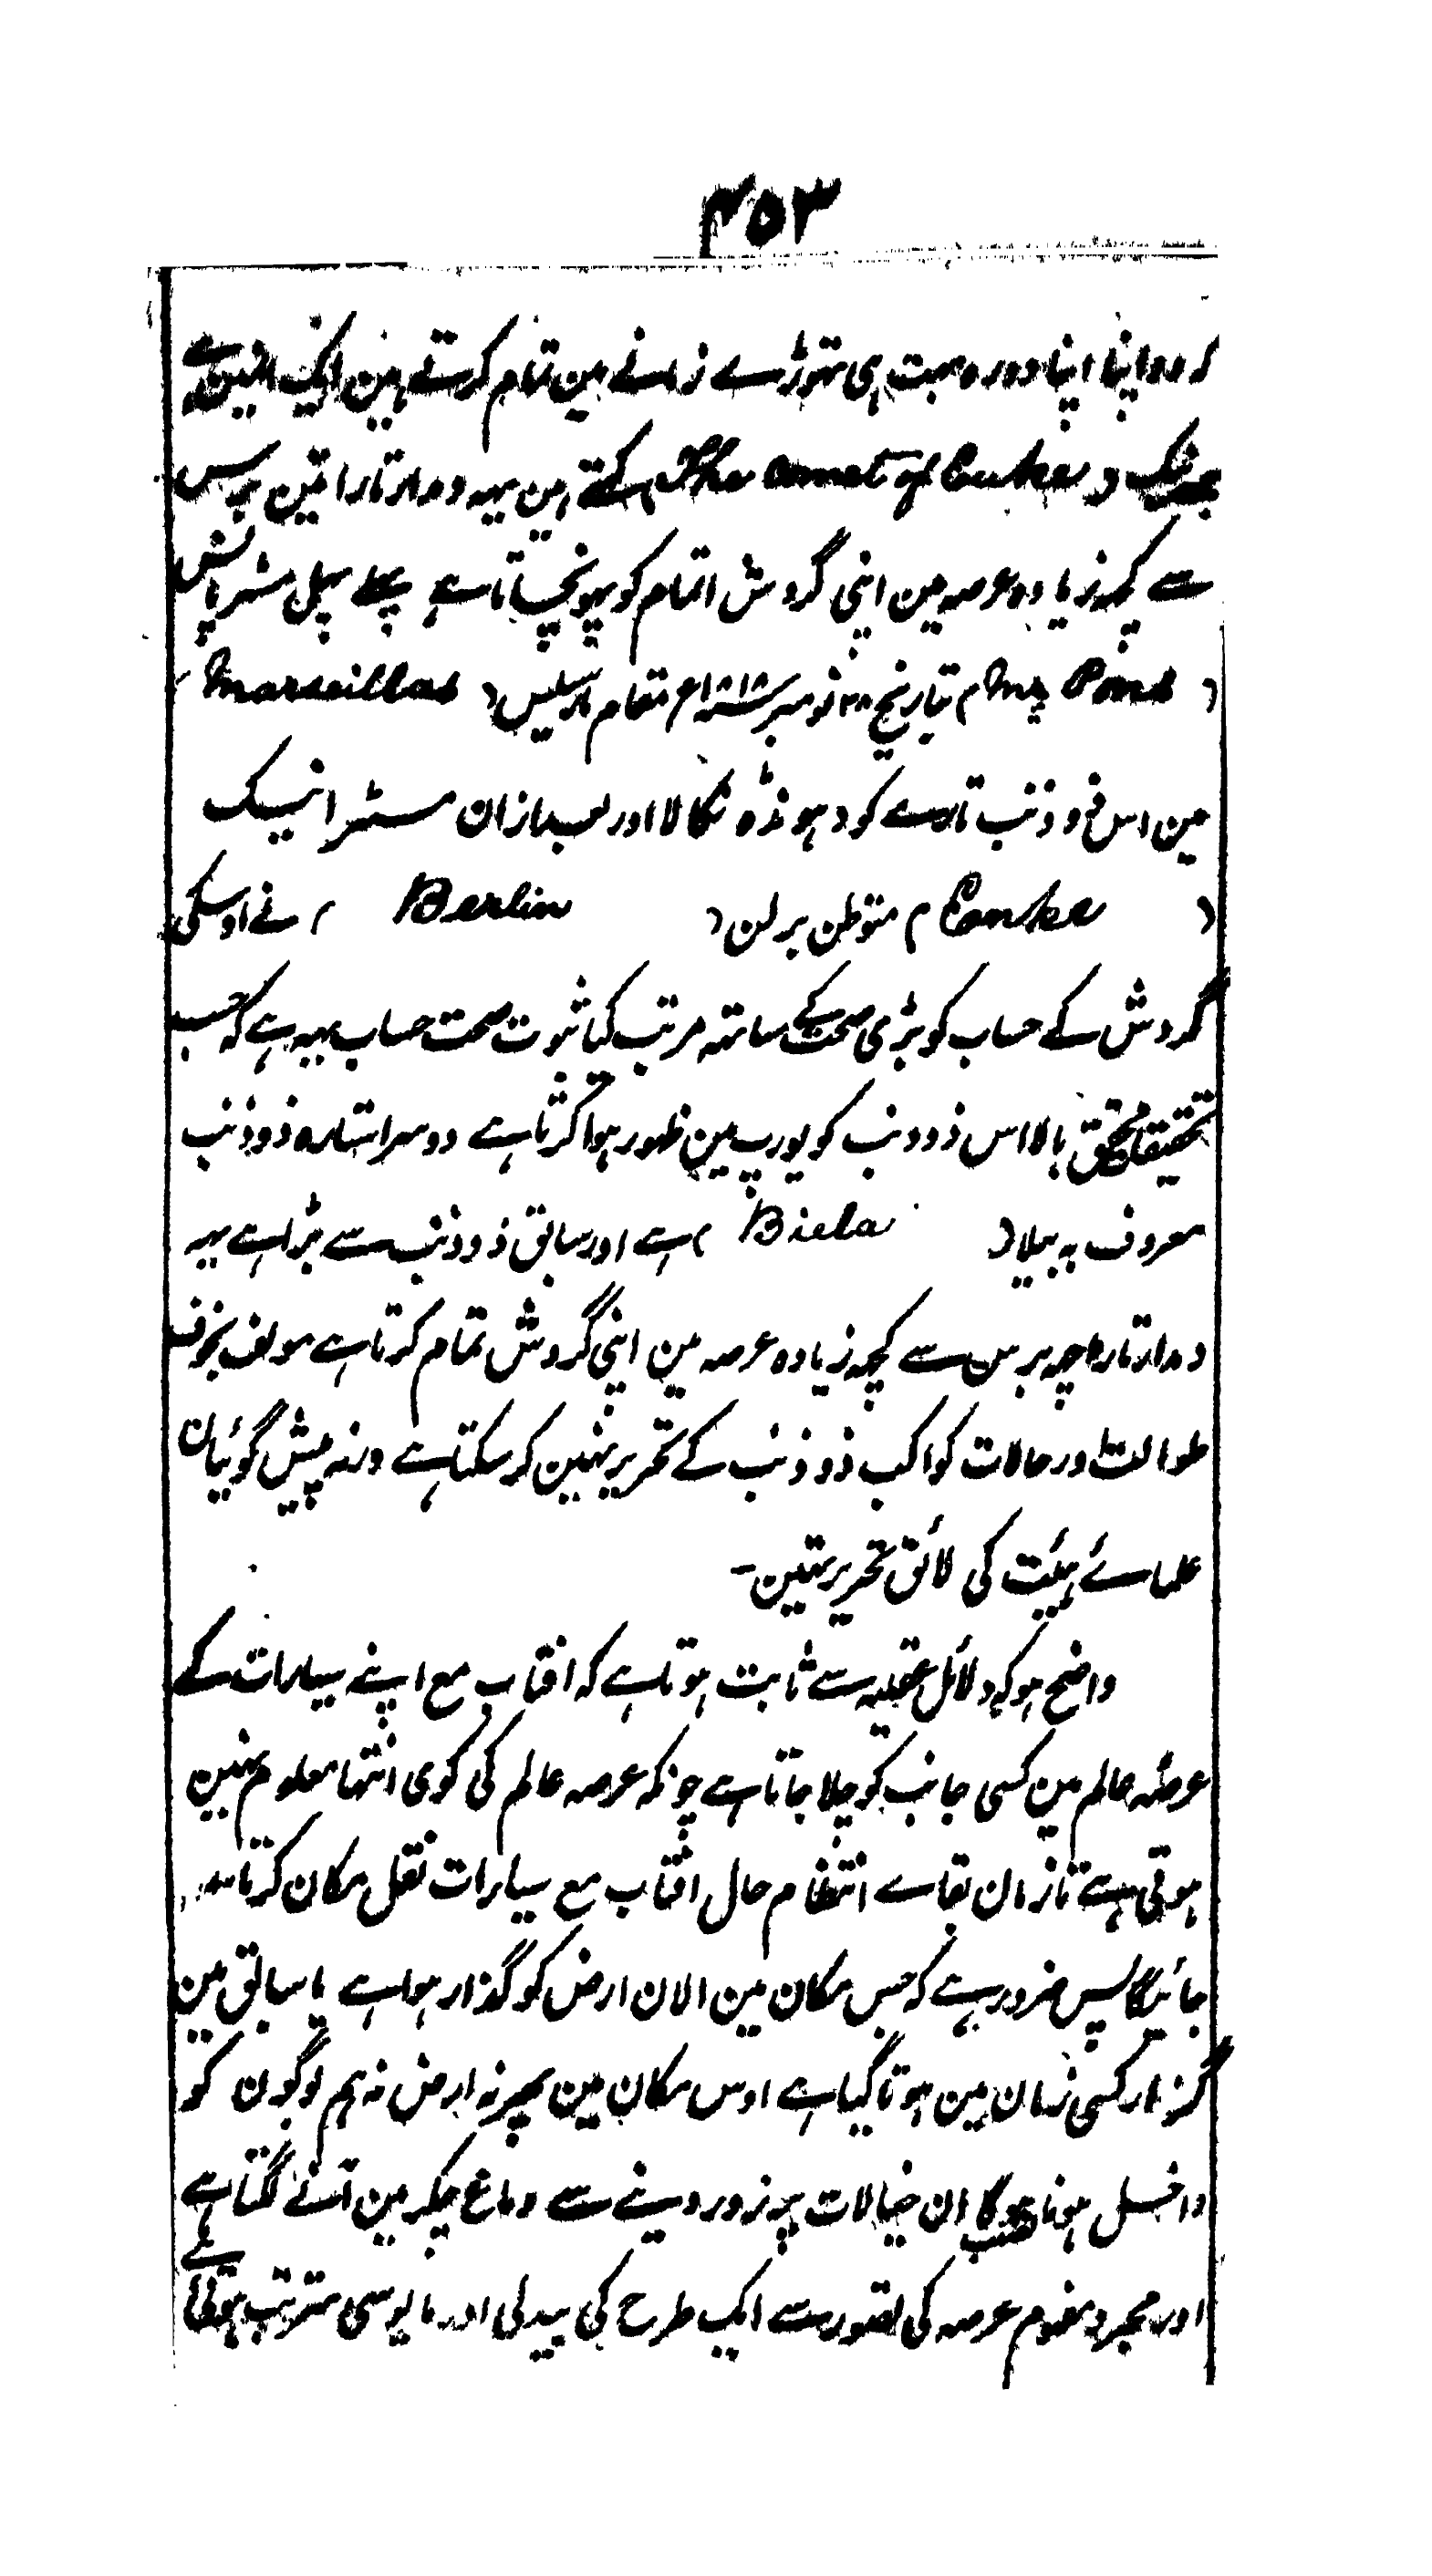 ۴۵۳
کہ وہ اپنا اپنا دورہ بہت ہی تہوڑے زمانے مین تمام کرتے ہین ایک انہین سے
جسکو ( The comet of Encke ) کہتے ہین یہہ دمدار تارا تین برس
سے کچہہ زیادہ عرصہ مین اپنی گردش اتمام کو پہونچاتا ہے پہلے پہل مسٹر پانس
( Mr Pons ) بتاریخ ۲۸ نومبر ۱۸۱۸ع مقام مارسلیس ( Marseillas )
مین اس ذو ذنب تارے کو دہونڈہ نکالا اور بعدازان مسٹر انیک
( Encke ) متوطن برلن ( Berlin ) نے اوسکی
گردش کے حساب کو بڑی صحت کے ساتہہ مرتب کیا ثبوت صحت حساب یہہ ہے کہ حسب
تحقیقات محقق بالا اس ذو ذنب کو یورپ مین ظہور ہوا کرتا ہے دوسرا ستارہ ذو ذنب
معروف بہ بیلا ( Biela ) ہے اور سابق ذو ذنب سے بڑا ہے یہہ
دمدار تارا چہہ برس سے کچہہ زیادہ عرصہ مین اپنی گردش تمام کرتا ہے مولف بخوف
طوالت اور حالات کواکب ذو ذنب کے تحریر نہین کر سکتا ہے ورنہ پیش گوئیان
علمائے ہیئت کی لائق تحریر تہین -
واضح ہو کہ دلائل عقلیہ سے ثابت ہوتا ہے کہ افتاب مع اپنے سیارات کے
عرصۂ عالم مین کسی جانب کو چلا جاتا ہے چونکہ عرصہ عالم کی کوی انتہا معلوم نہین
ہوتی ہے تا زمان بقاے انتظام حال افتاب مع سیارات نقل مکان کرتا
جائیگا پس ضرور ہے کہ جس مکان مین الان ارض کو گذار ہوا ہے یا سابق مین
گزار کسی زمان مین ہوتا گیا ہے اوس مکان مین پھر نہ ارض نہ ہم لوگون کو
داخل ہونا ہوگا ان خیالات پر زور دینے سے دماغ چکر مین آنے لگتا ہے
اور مجرد مفہوم عرصہ کی تصور سے ایک طرح کی بیدلی اور مایوسی مترتب ہوتی ہے